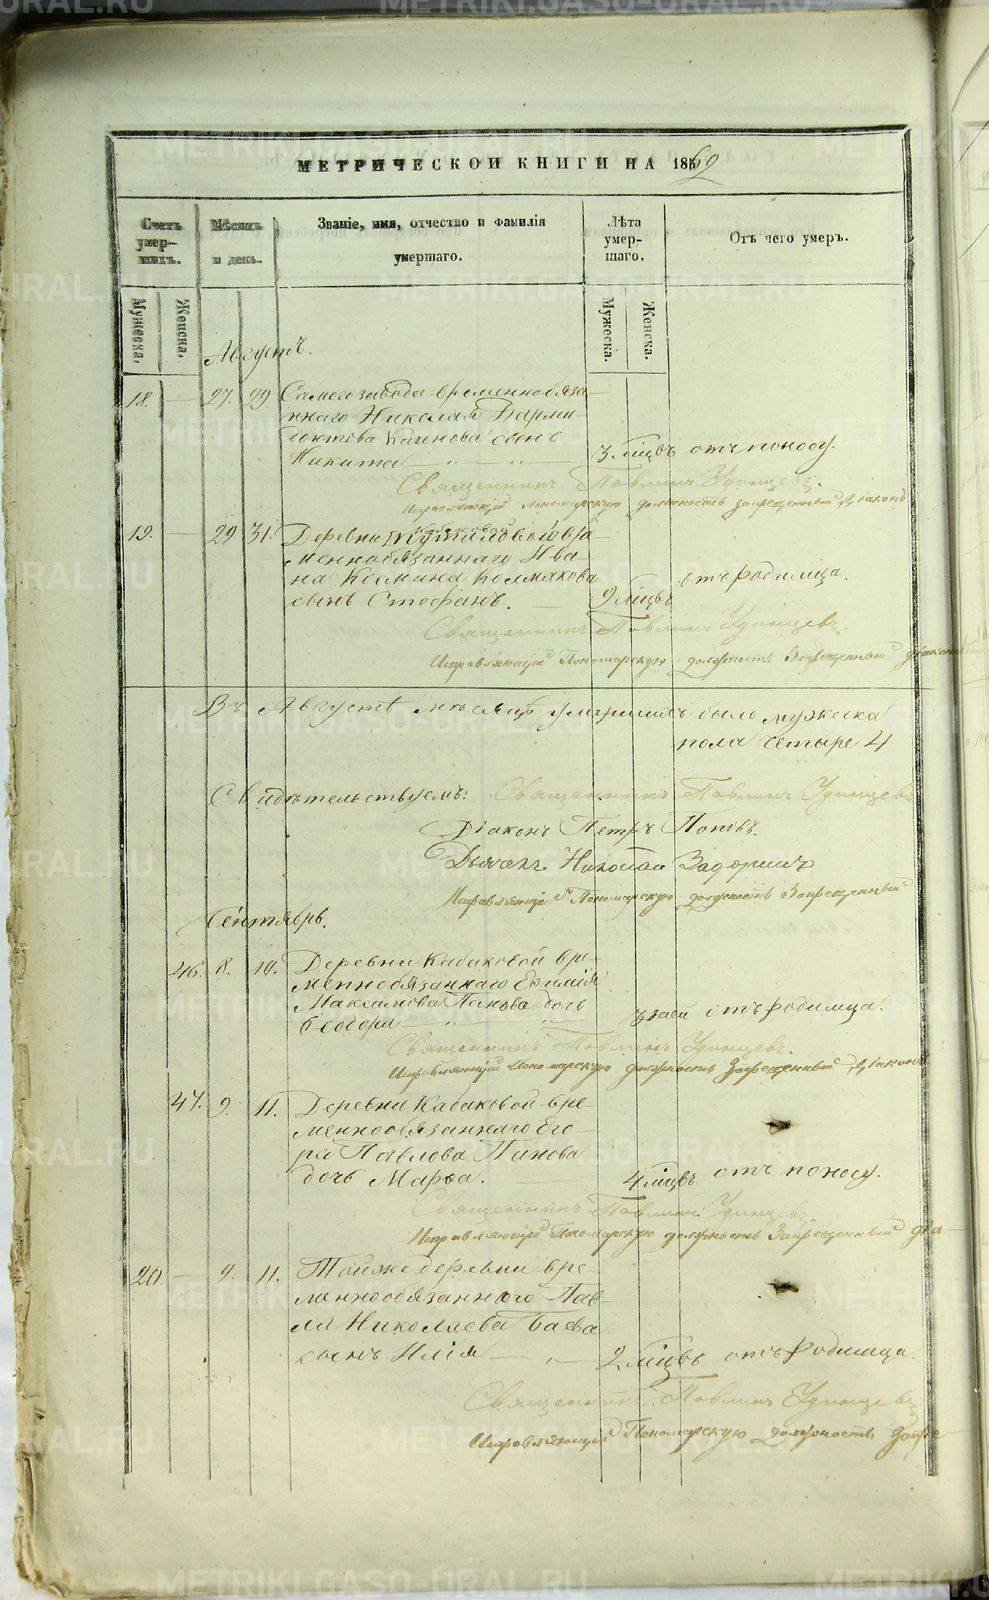 МЕТРИЧЕСКОЙ КНИГИ НА 1862
Счетъ умер-шихъ.
Мѣсяцъ и день.
Званіе, имя, отчество и фамилія умершаго.
Лѣта умер-шаго.
Отъ чего умеръ.
Мужеска.
Женска.
Мужеска.
Женска.
Августъ.
18. 27. 29 Самого завода временнообяза-
ннаго Николая
сынъ
Никита 3 мцвъ отъ поносу.
Священникъ Павлинъ Удинцевъ.
Исправляющій Пономарскую должность Запрещенный Діаконъ
19. 29 31. Деревни вре
меннообязаннаго Ива
на Космина Колмакова
сынъ Стефанъ. 2 мцвъ отъ родимца.
Священникъ Павлинъ Удинцевъ.
Исправляющій Пономарскую должность Запрещенный діаконъ
Въ Августѣ мѣсяцѣ умершихъ было мужеска
пола четыре 4
Свидѣтельствуемъ: Священникъ Павлинъ Удинцевъ
Діаконъ Петръ Поповъ.
Дьячекъ Николай Задоринъ
Исправляющій Пономарскую должность Запрещенный
Сентябрь.
46. 8. 10. Деревни Кабаковой вре-
меннообязаннаго
Максимова Панова дочь
Ѳеодора 3 отъ родимца.
Священникъ Павлинъ Удинцевъ.
Исправляющій Пономарскую должность Запрещенный Діаконъ
47. 9. 11. Деревни Кабаковой вре-
меннообязаннаго Его-
ра Павлова Панова
дочь Марѳа. 4 мцвъ отъ поносу.
Священникъ Павлинъ Удинцевъ
Исправляющій Пономарскую должность Запрещенный діа-
20 9. 11. Тойже деревни вре-
меннообязаннаго Пав-
ла Николаева Баева
сынъ Илія 2 мцвъ отъ родимца
Священникъ Павлинъ Удинцевъ
Исправляющій Пономарскую должность Запре-
METRIKI.GASO-URAL.RU